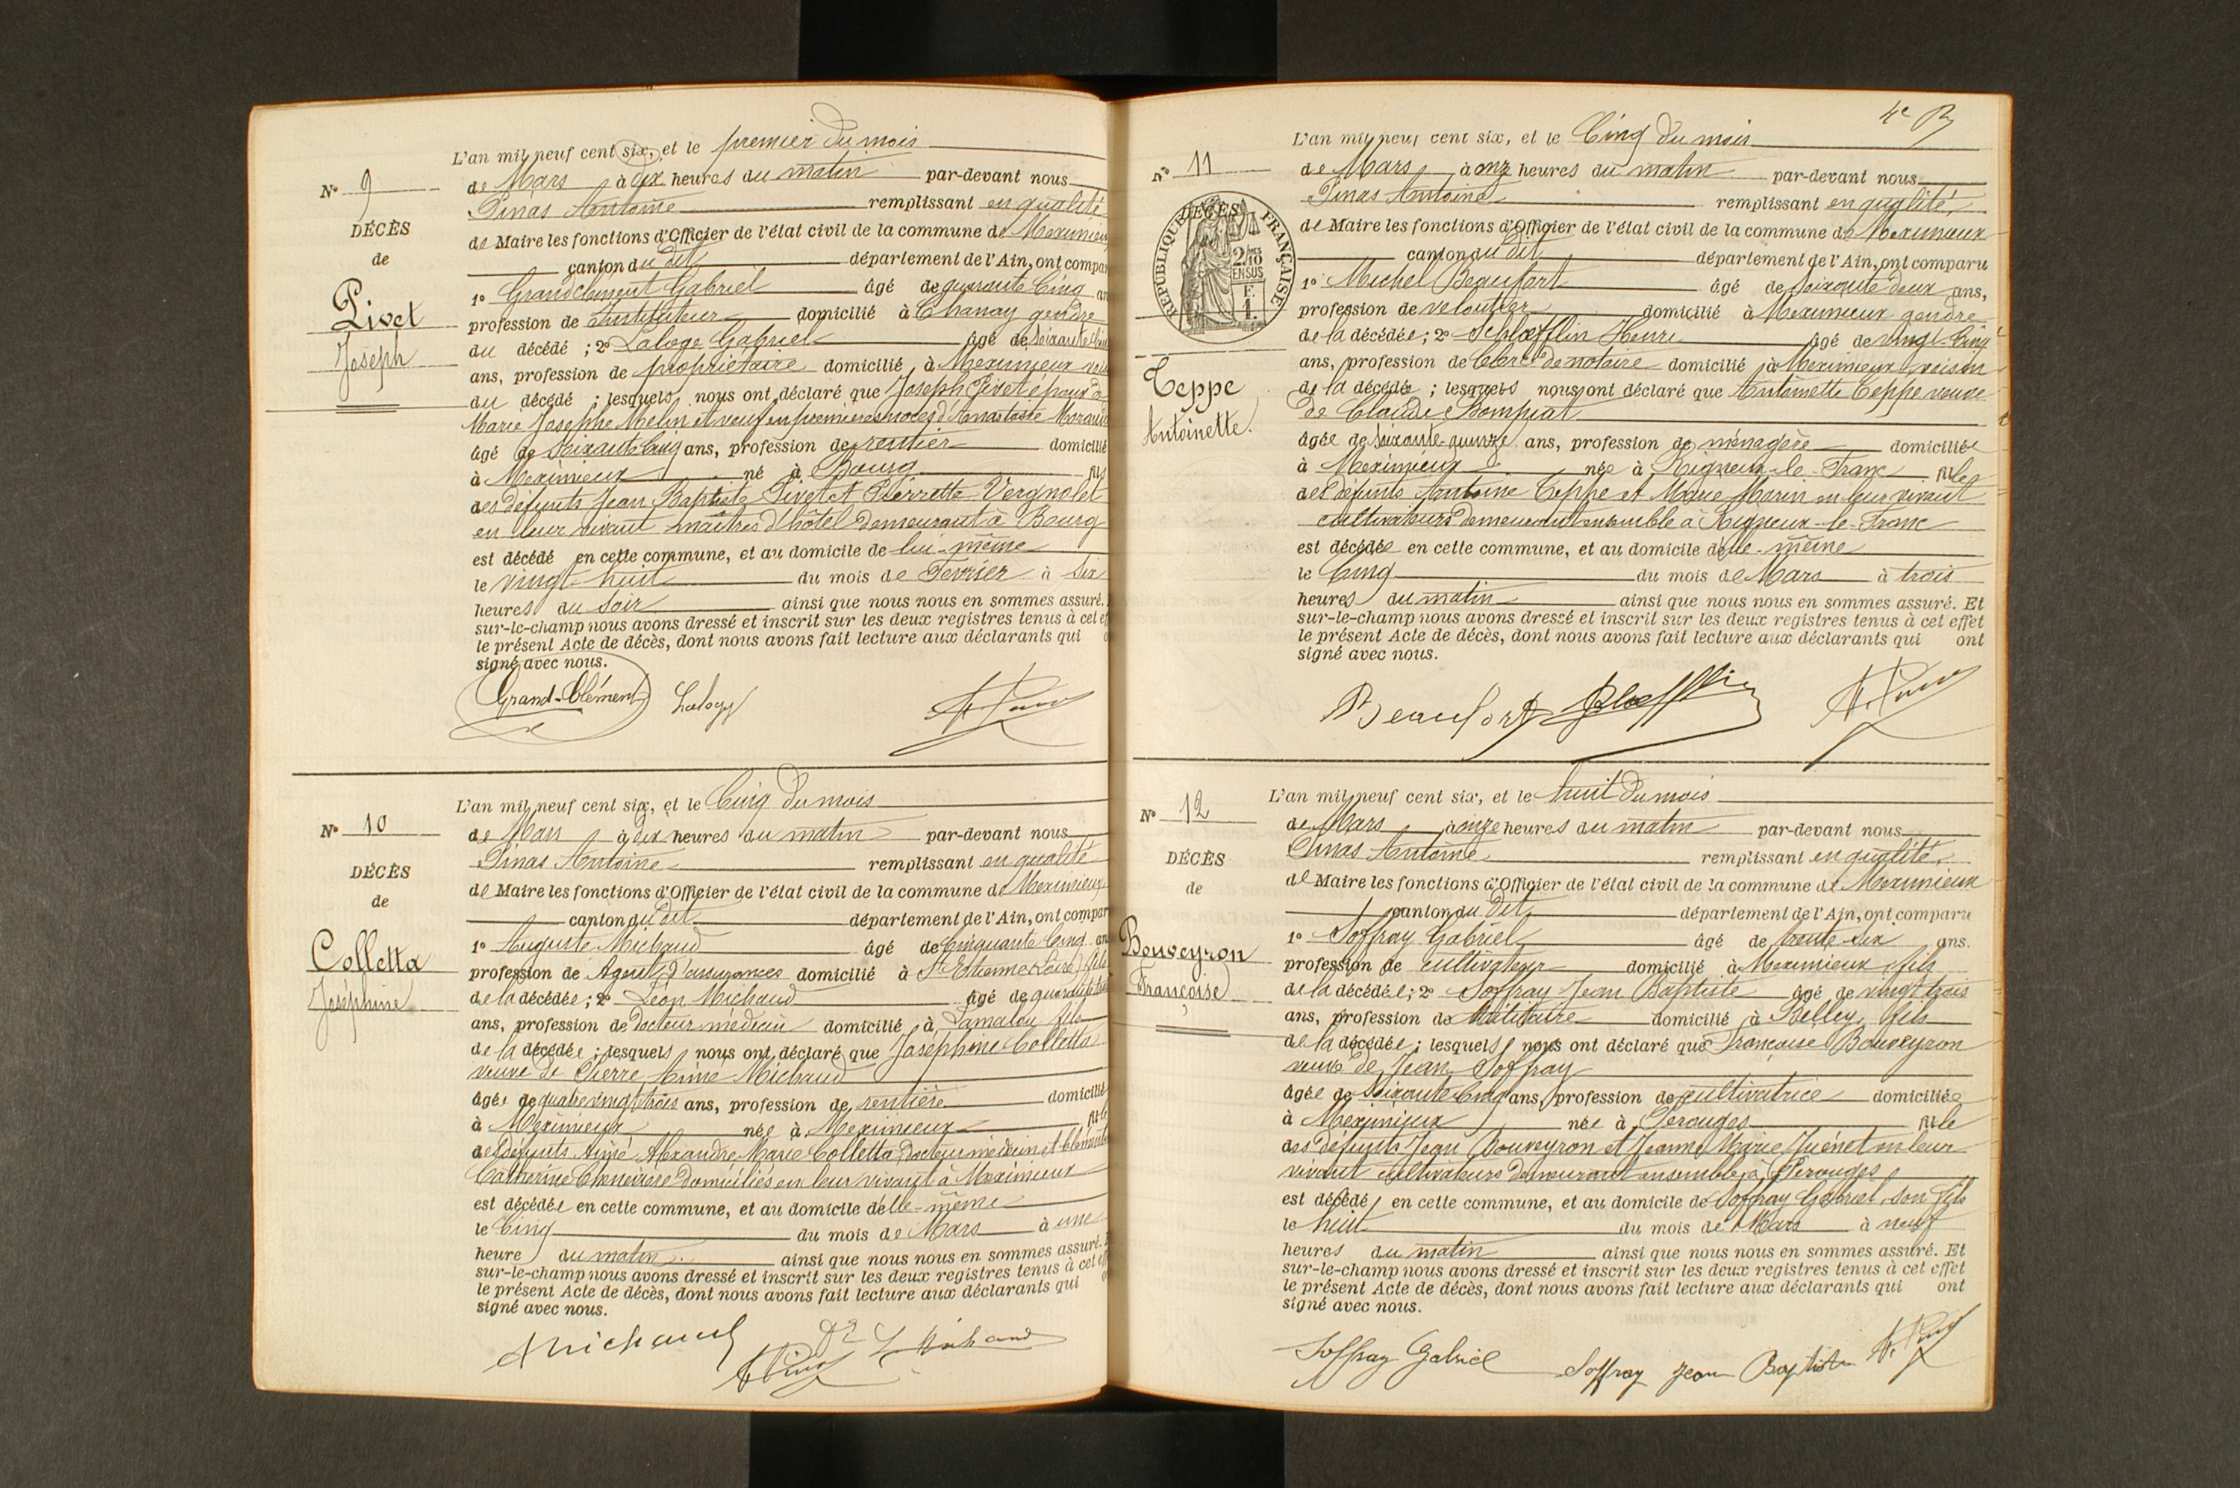 L'an mil neuf cent six, et le premier du mois
N° 9
de Mars à dix heures du matin par-devant nous
Pinas Antoine remplissant en qualité
DÉCÈS
de Maire les fonctions d'Officier de l'état civil de la commune de Meximieux
de
canton du dit département de l'Ain, ont compar
1° Grandclément Gabriel âgé de quarante Cinq an
Pivet
profession de Instituteur domicilié à Chanay gendre
Joseph
du décédé ; 2° Laloge Gabriel âgé de soixante
ans, profession de propriétaire domicilié à Meximieux voisin
du décédé ; lesquels nous ont déclaré que Joseph Pivet époux de
Marie Josephe Melin et veuf en premières noces d'Anastasie
âgé de soixante Cinq ans, profession de rentier domicilié
à Meximieux né à Bourg fils
des défunts Jean Baptiste Pivet et Pierrette Vergnolet
en leur vivant maîtres d'hôtel demeurant à Bourg
est décédé en cette commune, et au domicile de lui-même
le vingt-huit du mois de Février à six
heures du soir ainsi que nous nous en sommes assuré.
sur-le-champ nous avons dressé et inscrit sur les deux registres tenus à cet ef
le présent Acte de décès, dont nous avons fait lecture aux déclarants qui
signé avec nous.
Grand-Clément Laloge
L'an mil neuf cent six, et le Cinq du mois
N° 10
de Mars à dix heures du matin par-devant nous
Pinas Antoine remplissant en qualité
DÉCÈS
de Maire les fonctions d'Officier de l'état civil de la commune de Meximieux
de
canton du dit département de l'Ain, ont compar
1° Auguste Michaud âgé de Cinquante Cinq an
Colletta
profession de Agent d'assurances domicilié à St Etienne (Loire) fils
Joséphine
de la décédée ; 2° Léon Michaud âgé de
ans, profession de Docteur médecin domicilié à Lamalou fils
de la décédée ; lesquels nous ont déclaré que Joséphine Colletta
veuve de Pierre Aimé Michaud
âgée de quatre vingt trois ans, profession de rentière domicilié
à Meximieux née à Meximieux fille
des défunts Aimé Alexandre Marie Colletta, docteur médecin et
Catherine Chenevière domiciliés en leur vivant à Meximieux
est décédée en cette commune, et au domicile d'elle-même
le Cinq du mois de Mars à une
heure du matin ainsi que nous nous en sommes assuré.
sur-le-champ nous avons dressé et inscrit sur les deux registres tenus à cet ef
le présent Acte de décès, dont nous avons fait lecture aux déclarants qui
signé avec nous.
AMichaud Dr L Michaud
4e
L'an mil neuf cent six, et le Cinq du mois
N° 11
de Mars à onz heures du matin par-devant nous
Pinas Antoine remplissant en qualité
RÉPUBLIQUE FRANÇAISE
DÉCÈS
de Maire les fonctions d'Officier de l'état civil de la commune de Meximieux
2/10 EN SUS
canton du dit département de l'Ain, ont comparu
1° Michel Beaufort âgé de soixante deux ans,
profession de veloutier domicilié à Meximieux gendre
de la décédée ; 2° Schloefflin Henri âgé de vingt-Cinq
ans, profession de Clerc de notaire domicilié à Meximieux voisin
Teppe
de la décédée ; lesquels nous ont déclaré que Antoinette Teppe veuve
Antoinette.
de Claude Bompiat
âgée de soixante quinze ans, profession de ménagère domiciliée
à Meximieux née à Rigneux-le-Franc fille
des défunts Antoine Teppe et Marie Morin en leur vivant
cultivateurs demeurant ensemble à Rigneux-le-Franc
est décédée en cette commune, et au domicile d'elle-même
le Cinq du mois de Mars à trois
heures du matin ainsi que nous nous en sommes assuré. Et
sur-le-champ nous avons dressé et inscrit sur les deux registres tenus à cet effet
le présent Acte de décès, dont nous avons fait lecture aux déclarants qui ont
signé avec nous.
Beaufort
L'an mil neuf cent six, et le huit du mois
N° 12
de Mars à onze heures du matin par-devant nous
Pinas Antoine remplissant en qualité
DÉCÈS
de Maire les fonctions d'Officier de l'état civil de la commune de Meximieux
de
canton du dit département de l'Ain, ont comparu
1° Soffray Gabriel âgé de trente six ans.
Bouveyron
profession de cultivateur domicilié à Meximieux fils
Françoise
de la décédée ; 2° Soffray Jean Baptiste âgé de vingt trois
ans, profession de Militaire domicilié à Belley, fils
de la décédée ; lesquels nous ont déclaré que Françoise Bouveyron
veuve de Jean Soffray
âgée de soixante Cinq ans, profession de cultivatrice domiciliée
à Meximieux née à Pérouges fille
des défunts Jean Bouveyron et Jeanne Marie Juénet en leur
vivant cultivateurs demeurant ensemble à Pérouges
est décédé en cette commune, et au domicile de Soffray Gabriel, son fils
le huit du mois de Mars à neuf
heures du matin ainsi que nous nous en sommes assuré. Et
sur-le-champ nous avons dressé et inscrit sur les deux registres tenus à cet effet
le présent Acte de décès, dont nous avons fait lecture aux déclarants qui ont
signé avec nous.
Soffray Gabriel Soffray Jean Baptiste